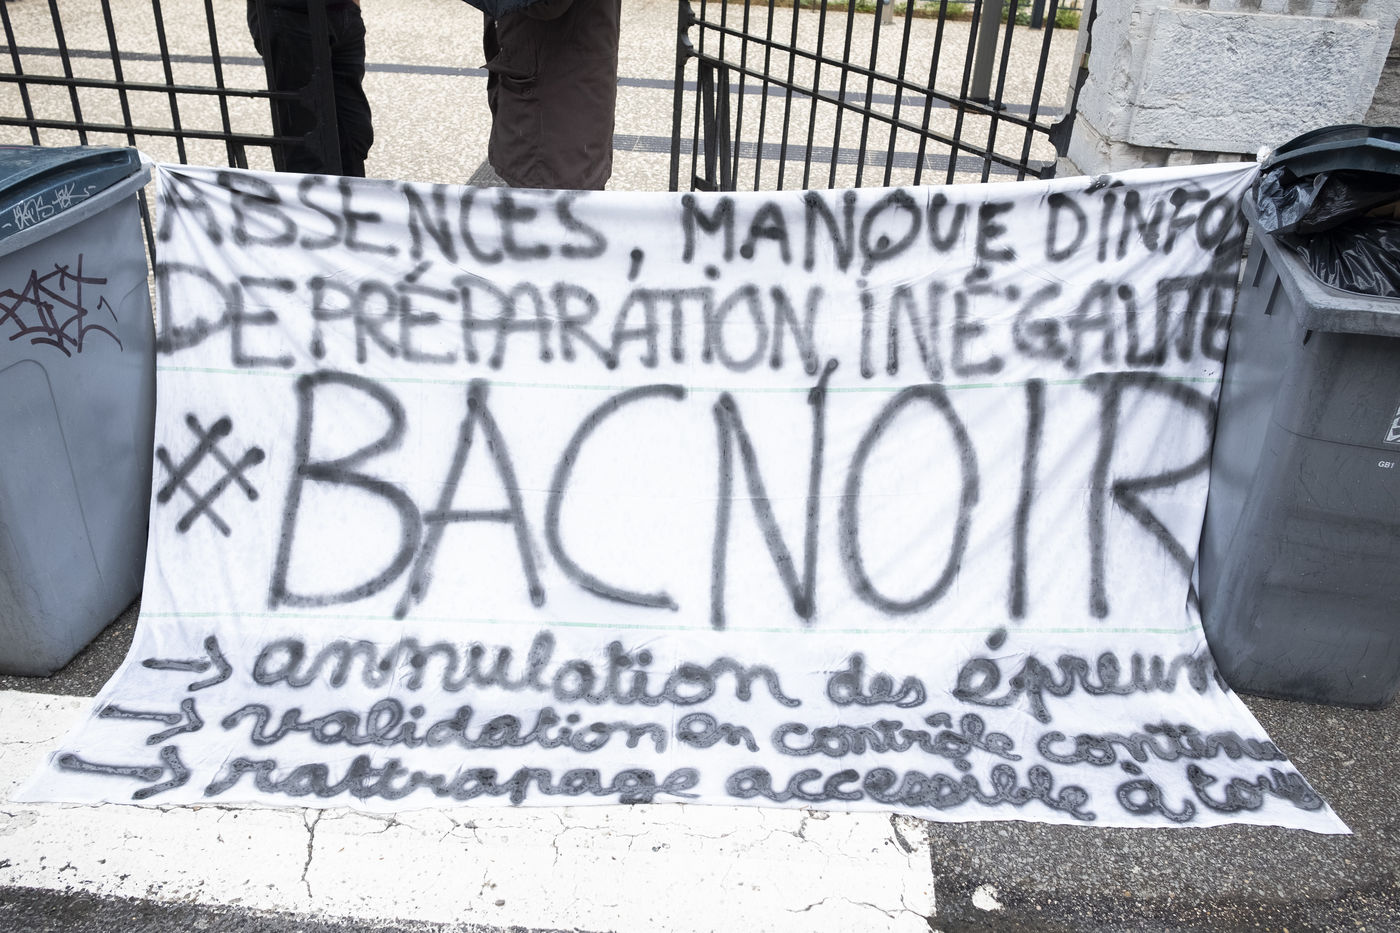 ABSENCES, MANQUE D'INFOS
DE PRÉPARATION, INÉGALITÉ
# BAC NOIR
→ annulation des épreuv
→ validation en contrôle continu
→ rattrapage accessible à tous
GB1